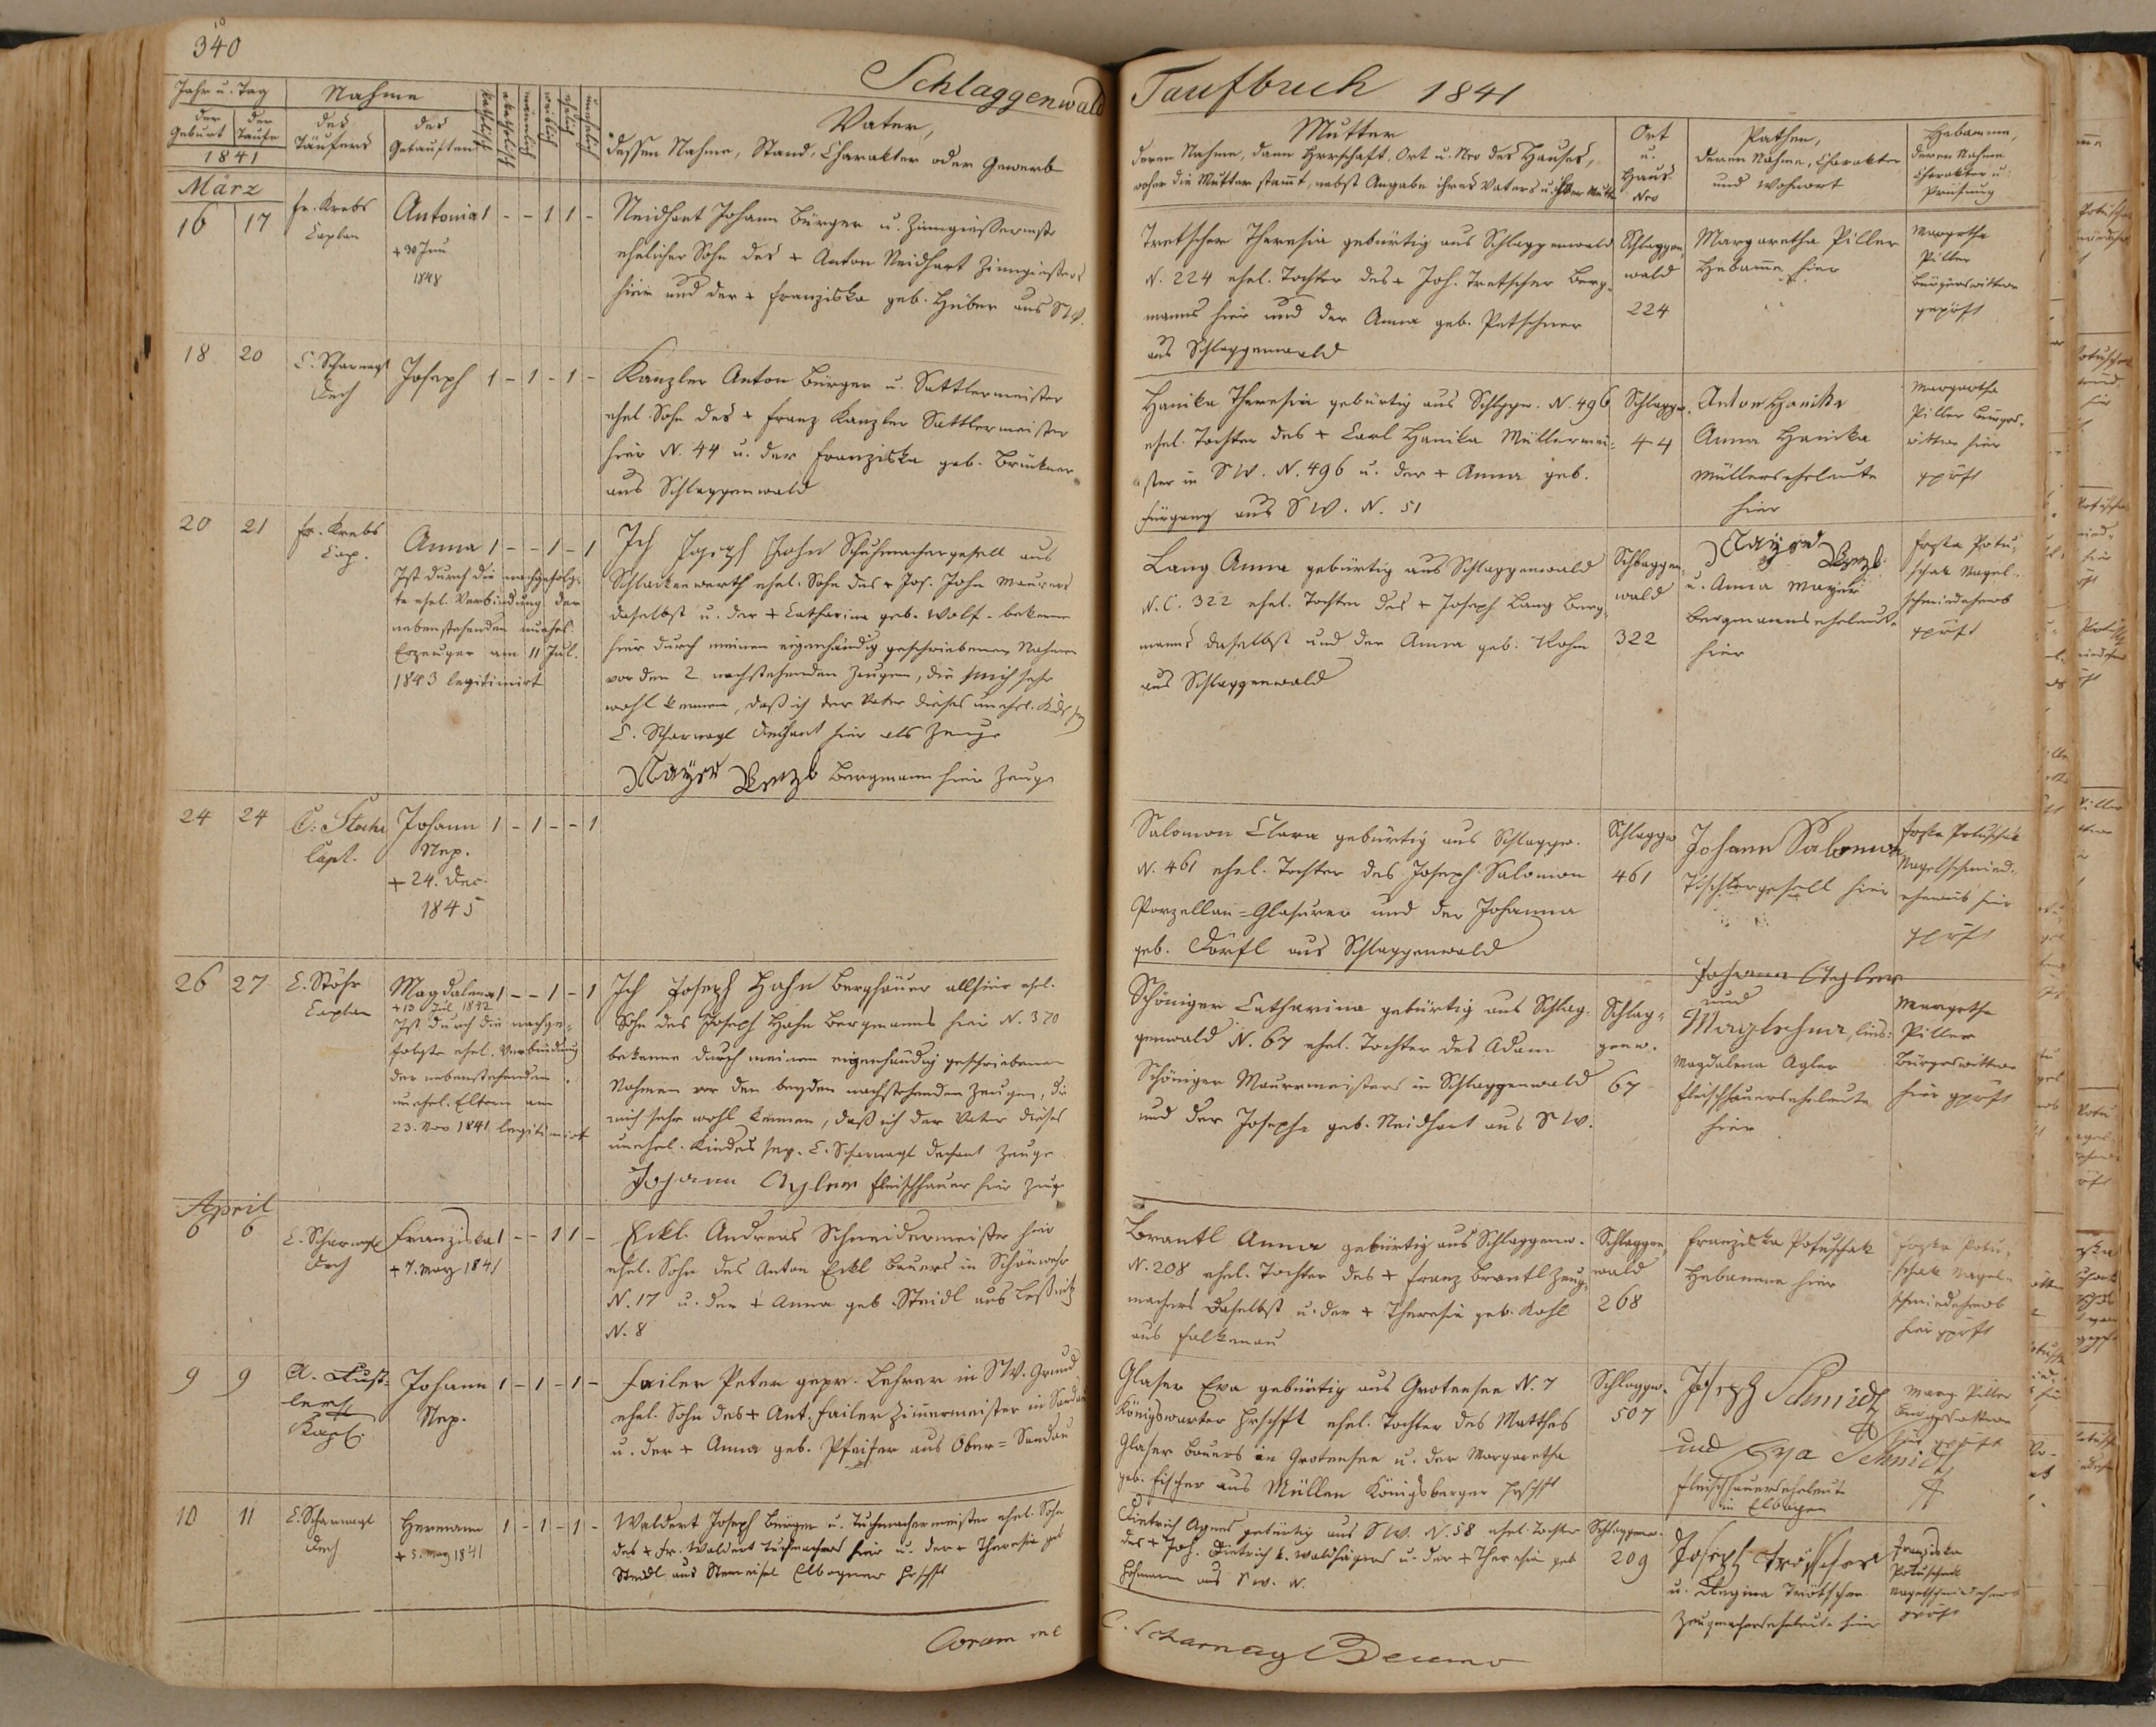 340
Schlaggenwald Taufbuch 1841
Jahr u. Tag
der Geburt
der Taufe
1841
Nahme
des Täufers
des Getauften
katholisch
akatholisch
männlich
weiblich
ehelich
unehelich
Vater,
dessen Nahme, Stand, Charakter oder Gewerb
Mutter
deren Nahme, dann Herrschaft, Ort u. Nro des Hauses,
woher die Mutter stamt, nebst Angabe ihres Vaters u. ihrer Mutter
Ort
u.
Haus
Nro
Pathen,
deren Nahme, Charakter
und Wohnort
Hebamme,
deren Nahme
Charakter u.
Prüfung
März
16 17
fr. Krebs
Caplan
Antonia 1 - - 1 1 -
+ 30 Jun
1848
Neidhart Johann Bürger u. Zinngießermstr
ehelicher Sohn des + Anton Neidhart Zinngießers
hier und der + Franziska geb. Huber aus SW.
Tretscher Theresia gebürtig aus Schlaggenwald
N. 224 ehel. Tochter des + Joh. Tretscher Berg-
manns hier und der Anna geb. Petschner
aus Schlaggenwald
Schlaggen
wald
224
Margaretha Piller
Hebamme hier
Margetha
Piller
Bürgerswittwe
geprüft
18 20
C. Scharnagl
Dech
Joseph 1 - 1 - 1 -
Kanzler Anton Bürger u. Sattlermeister
ehel. Sohn des + Franz Kanzler Sattlermeister
hier N. 44 u. der Franziska geb. Brückner
aus Schlaggenwald
Hanika Theresia gebürtig aus Schlggw. N. 496
ehel. Tochter des + Carl Hanika Müllermei-
ster in SW. N. 496 u. der + Anna geb.
Fürgang aus SW. N. 51
Schlaggw.
44
Anton Hanika
Anna Hanika
Müllerseheleute
hier
Margaretha
Piller Bürgers-
wittwe hier
gprüft
20 21
fr. Krebs
Cap.
Anna 1 - - 1 - 1
Ist durch die nachgefolg-
te ehel. Verbindung der
nebenstehenden unehel.
Erzeuger am 11 Jul.
1843 legitimirt
Ich Joseph John Schuhmachergesell aus
Schlackenwerth ehel. Sohn des + Jos. John Maurers
daselbst u. der + Catharina geb. Wolf - bekenne
hier durch meinen eigenhändig geschriebenen Nahmen
vor den 2 nachstehenden Zeugen, die mich sehr
wohl kennen, daß ich der Vater dieses unehel. Kds sey
C. Scharnagl Dechant hier als Zeuge
Mayer Bergmann hier Zeuge
Lang Anna gebürtig aus Schlaggenwald
N. C. 322 ehel. Tochter des + Joseph Lang Berg-
manns daselbst und der Anna geb. Rohm
aus Schlaggenwald
Schlaggen-
wald
322
Mayer
u. Anna Mayer
Bergmannseheleute
hier
Potu-
schak Nagel-
schmiedsweib
gprüft
24 24
C. Stöhr
Capl.
Johann 1 - 1 - - 1
Nep.
+ 24. Dec.
1845
Salomon Clara gebürtig aus Schlaggw.
N. 461 ehel. Tochter des Joseph Salomon
Porzellan-Glasurer und der Johanna
geb. Dörfl aus Schlaggenwald
Schlaggw
461
Johann Salomon
Tischlergesell hier
Potuschak
Nagelschmied-
eheweib hier
gprüft
26 27
C. Stöhr
Caplan
Magdalena 1 - - 1 - 1
+ 13 Jul 1842
Ist durch die nachge-
folgte ehel. Verbindung
der nebenstehenden
unehel. Eltern am
23. Nov 1841 legitimirt
Ich Joseph Hahn Berghäuer allhier ehel.
Sohn des Joseph Hahn Bergmanns hier N. 370
bekenne durch meinen eigenhändig geschriebenen
Nahmen vor den beyden nachstehenden Zeugen, die
mich sehr wohl kennen, daß ich der Vater dieses
unehel. Kindes sey. C. Scharnagl Dechant Zeuge
Johann Agler Fleischhauer hier Zeuge
Schöniger Catharina gebürtig aus Schlag-
genwald N. 67 ehel. Tochter des Adam
Schöniger Maurermeisters in Schlaggenwald
und der Josepha geb. Neidhart aus SW.
Schlag-
genw.
67
Johann Agler
und
Magdalena Agler
Fleischhauerseheleute
hier
Margetha
Piller
Bürgerswittwe
hier gprüft
April
6 6
C. Scharnagl
Dech
Franziska 1 - - 1 1 -
+ 7. May 1841
Eckl Andreas Schneidermeister hier
ehel. Sohn des Anton Eckl Bauers in Schönwehr
N. 17 u. der + Anna geb. Steidl aus Leßnitz
N. 8
Brantl Anna gebürtig aus Schlaggenw.
N. 208 ehel. Tochter des + Franz Brantl Zeug-
machers daselbst u. der + Theresia geb. Kohl
aus Falkenau
Schlaggen
wald
268
Franziska Potuschak
Hebamme hier
Potu-
schak Nagel-
schmiedsweib
hier gprüft
9 9
Kapl.
Johann 1 - 1 - 1 -
Nep.
Failer Peter gepr. Lehrer in SW. Grund
ehel. Sohn des + Ant. Failer Zimmermeister in Sandau
u. der + Anna geb. Pfeifer aus Ober-Sandau
Glaser Eva gebürtig aus Grotensee N. 7
Königswarter Hrschft ehel. Tochter des Matthes
Glaser Bauers in Grotensee u. der Margaretha
geb. Fischer aus Müllen Königsberger Hrschft
Schlaggw.
507
Joseph Schmidt
und Eva Schmidt
Fleischhauerseheleute
in Elbogen
Marg. Piller
Bürgerswittwe
hier gprüft
10 11
C. Scharnagl
Dech
Hermann 1 - 1 - 1 -
+ 5. May 1841
Waldert Joseph Bürger u. Tuchmachermeister ehel. Sohn
des + Fr. Waldert Tuchmachers hier u. der + Theresia geb
Steidl aus Steinsel Elbogner Hrschft
Dietrich Agnes gebürtig aus SW. N. 58 ehel. Tochter
des + Joh. Dietrich k. Waldhägers u. der + Theresia geb
Hohmann aus SW. N.
Schlaggenw.
209
Joseph Trötscher
u. Regina Trötscher
Zeugmacherseheleute hier
Franziska
Potuschak
Nagelschmiedsweib
gprüft
Coram me
C. Scharnagl